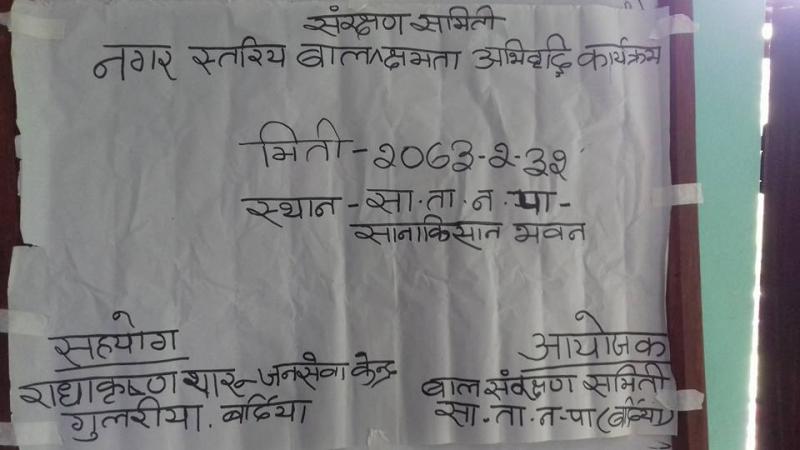 संरक्षण समिती
नगर स्तरिय बाल क्षमता अभिवृद्धि कार्यक्रम
मिती - २०७३-२-३२
स्थान - सा.ता.न.पा -
सानाकिसान भवन
सहयोग
राधाकृष्ण थारु - जनसेवा केन्द्र
गुलरीया. बर्दिया
आयोजक
बाल संरक्षण समिती
सा.ता.न-पा (बर्दिया)